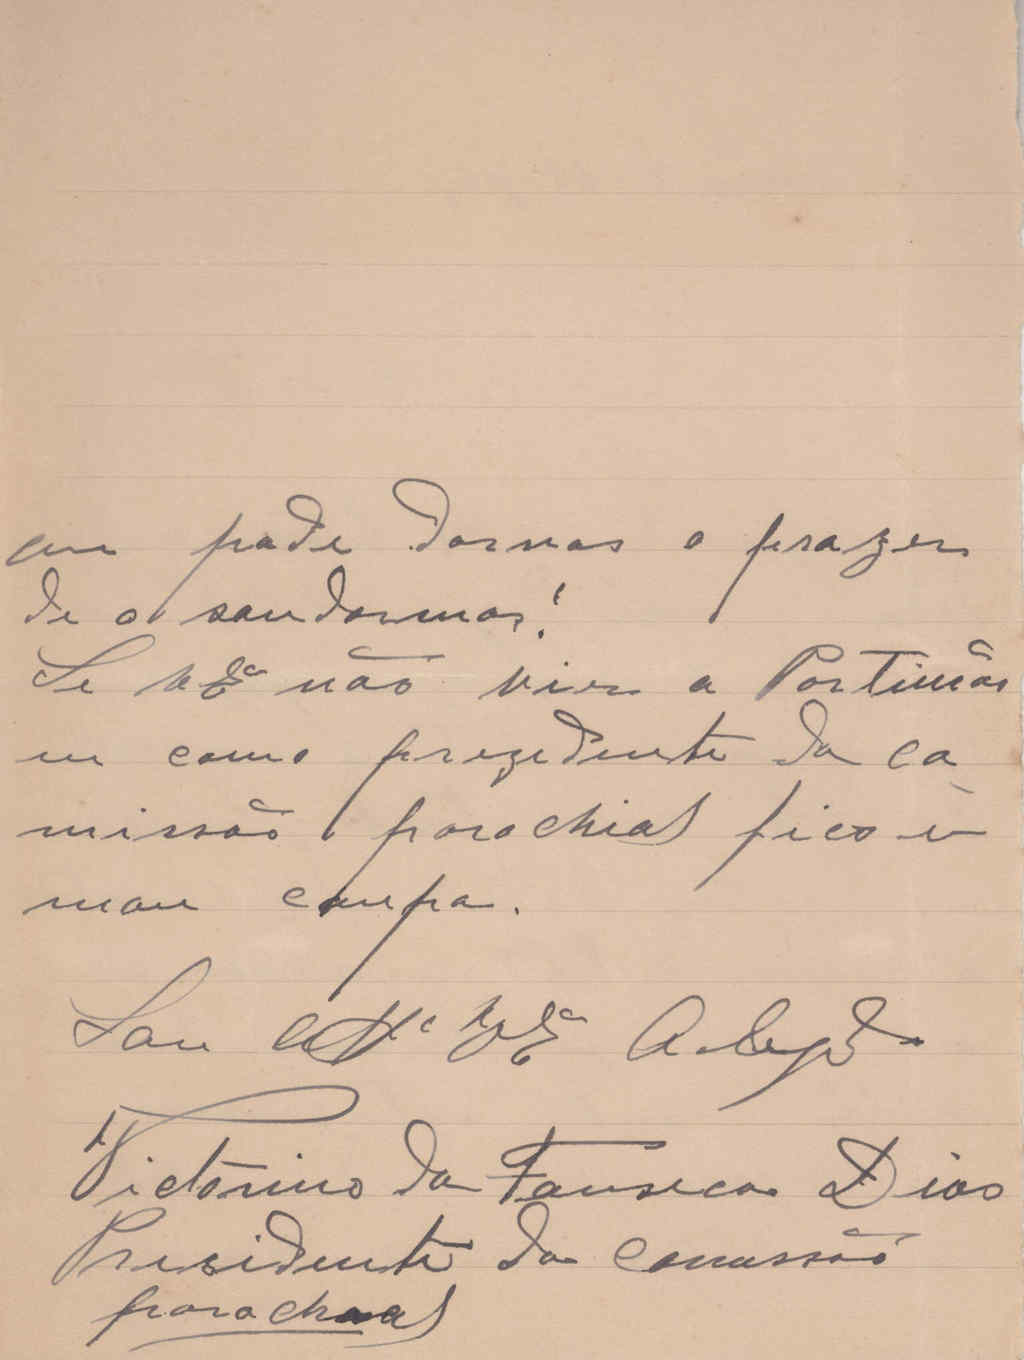 em pode darnos o prazer
de o saudarmos!
Se V. Ex.ª não vier a Portimão
eu como prezidente da co
missão parochial fico è
mau
Sou de V. Ex.ª
Victorino da Fonseca Dias
Presidente da Comissão
parochial